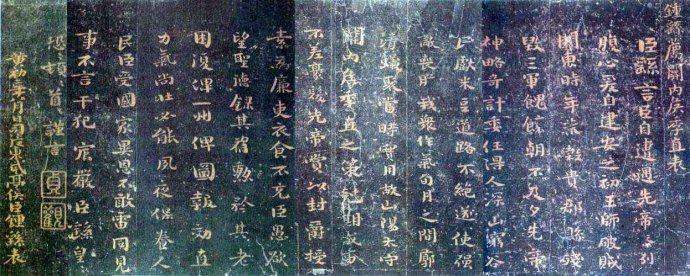 鍾繇薦關內侯季直表
臣繇言臣自遭遇先帝忝列
腹心爰自建安之初王師破賊
關東時年荒穀貴郡縣殘
毀三軍餽饟朝不及夕先帝
神略奇計委任得人深山窮谷
民獻米豆道路不絕遂使強
敵喪膽我衆作氣旬月之間廓
清蟻聚當時實用故山陽太守
關內侯季直之策剋期成事
不差豪髮先帝賞以封爵授
素為廉吏衣食不充臣愚欲
望聖德錄其舊勳矜其老
困復俾一州俾圖報效直
力氣尚壯必能夙夜保養人
民臣受國家異恩不敢雷同見
事不言干犯宸嚴臣繇皇
恐頓首謹言
貞觀
黃初二年八月日司徒東武亭侯臣鍾繇表